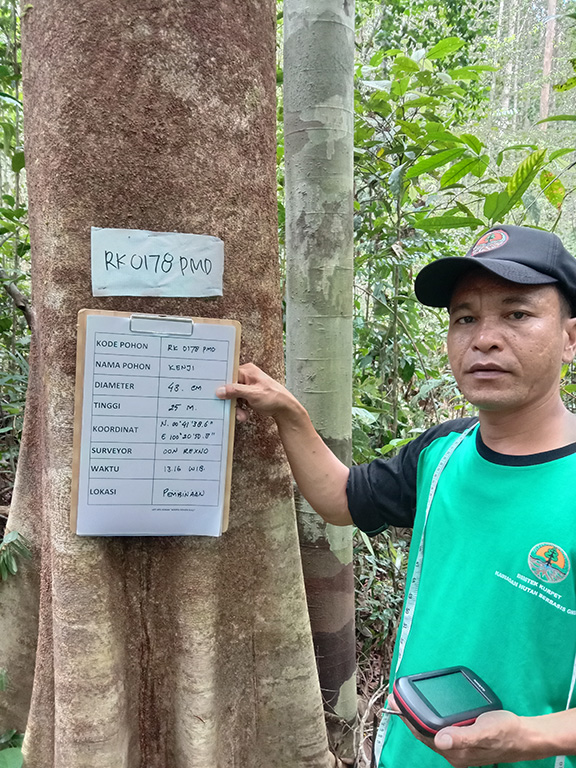 RK 0178 PMD
KODE POHON RK 0178 PMD
NAMA POHON KENJI
DIAMETER 48. CM
TINGGI 25 M.
KOORDINAT N. 00°41'38.6"
E 100°20'30.8"
SURVEYOR DON REXNO
WAKTU 13.16 WIB
LOKASI PEMBINAAN
BIMTEK KURPET
KAWASAN HUTAN BERBASIS